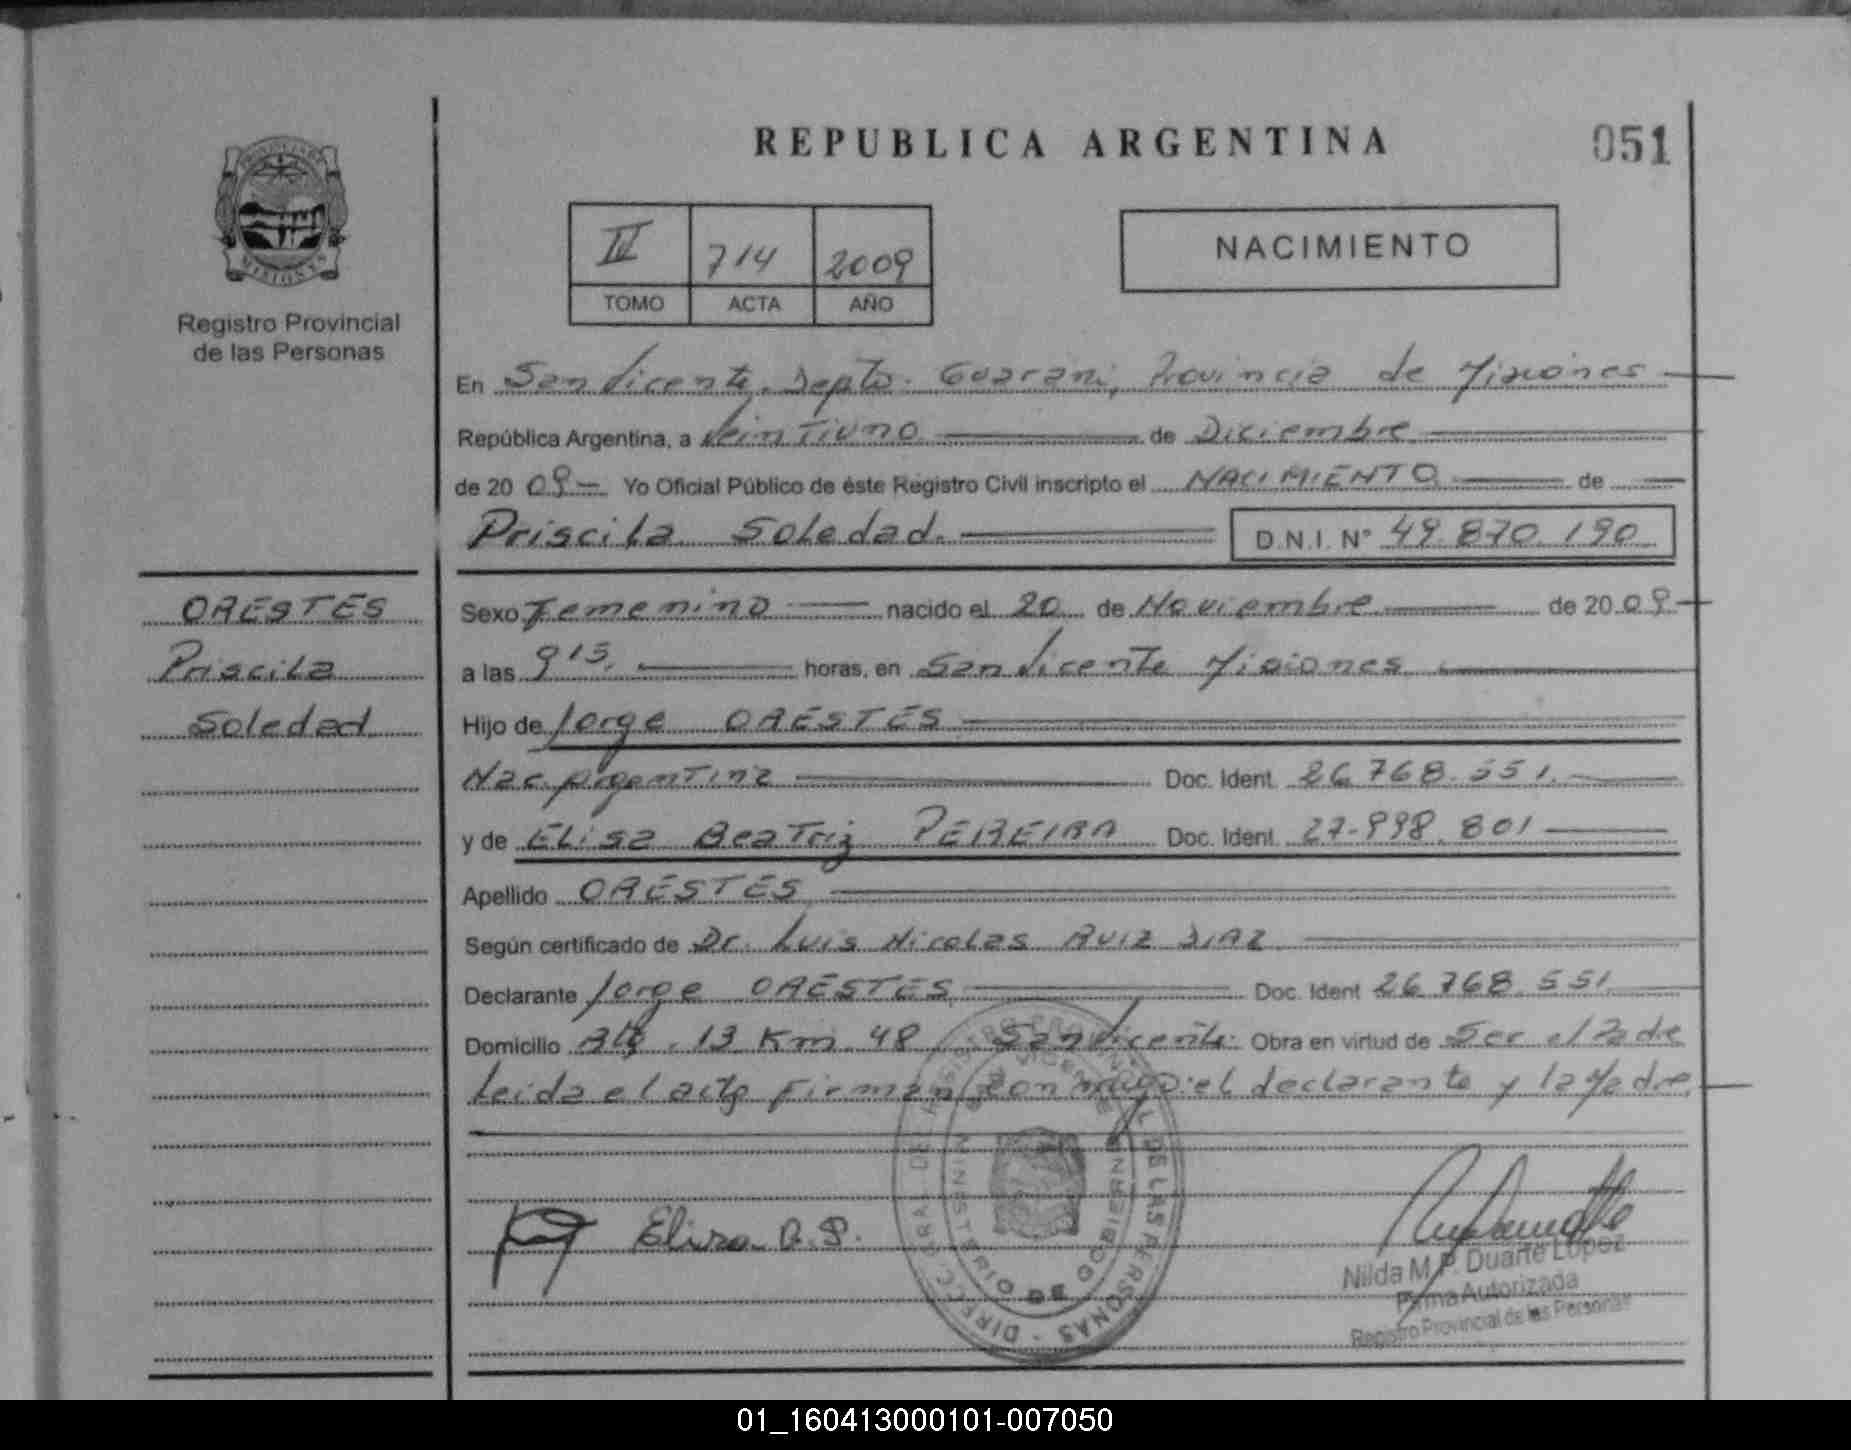 REPUBLICA ARGENTINA
051
Registro Provincial
de las Personas
IV 714 2009
TOMO ACTA AÑO
NACIMIENTO
En San Vicente, Depto. Guarani, Provincia de Misiones
República Argentina, a Veintiuno de Diciembre
de 20 09 Yo Oficial Público de éste Registro Civil inscripto el NACIMIENTO de
Priscila Soledad. D.N.I. N° 49.870.190
ORESTES
Priscila
Soledad
Sexo Femenino nacido el 20 de Noviembre de 20 09
a las 9 15 horas, en San Vicente Misiones
Hijo de Jorge ORESTES
Nac. Argentina Doc. Ident. 26.768.551.
y de Elisa Beatriz PEREIRA Doc. Ident. 27.998.801
Apellido ORESTES
Según certificado de Dr. Luis Nicolas RUIZ DIAZ
Declarante Jorge ORESTES Doc. Ident 26.768.551
Domicilio Rta. 13 Km. 48 San Vicente. Obra en virtud de Ser el Padre
Leida el acta Firman conmigo: el declarante y la Madre
Elisa B. P.
DIREC. GRAL. DE REGISTRO PROVINCIAL DE LAS PERSONAS
MINISTERIO DE GOBIERNO
SAN VICENTE
Nilda M. P. Duarte López
Firma Autorizada
Registro Provincial de las Personas
01_160413000101-007050